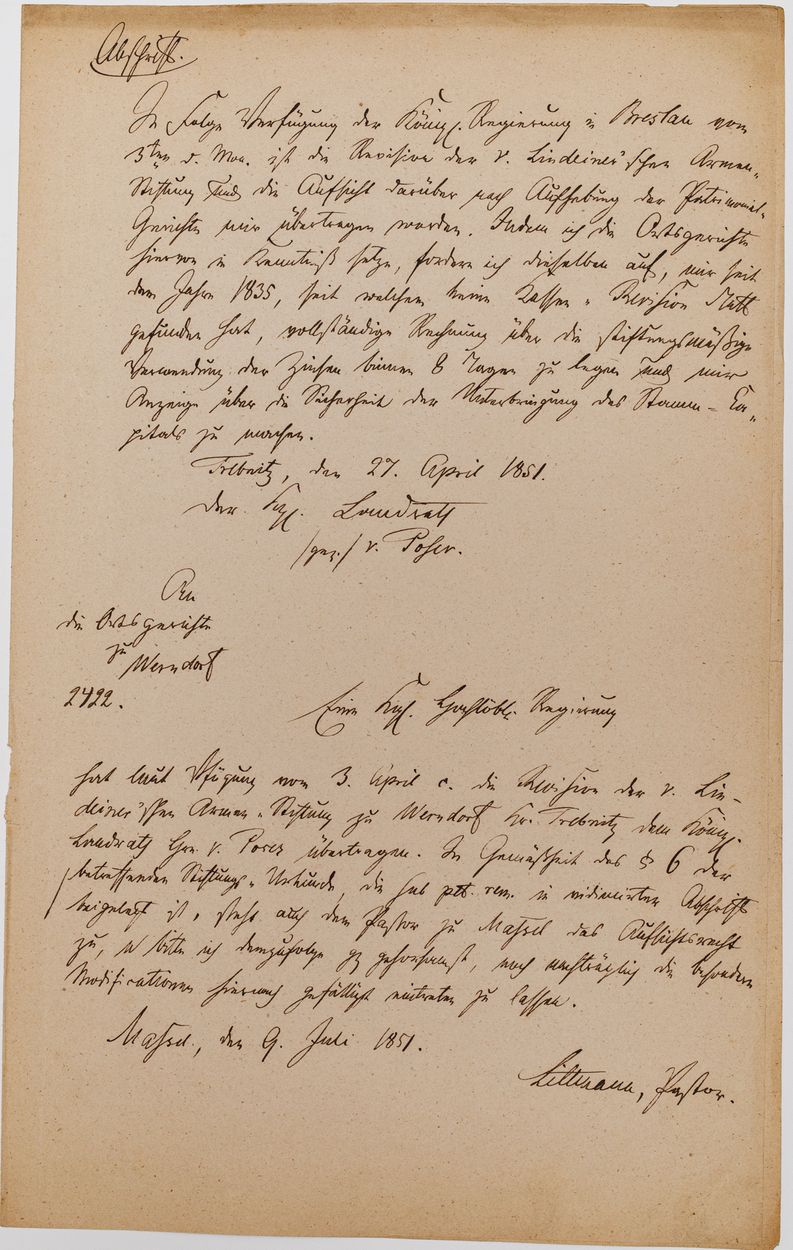 Abschrift.
In Folge Verfügung der Königl. Regierung in Breslau vom
3ten d. Mon. ist die Revision der v. Lindeiner'schen Armen-
Stiftung und die Aufsicht darüber nach Aufhebung der Patrimonial-
Gerichte mir übertragen worden. Indem ich die Ortsgerichte
hiervon in Kenntniß setze, fordere ich dieselben auf, mir seit
dem Jahre 1835, seit welchem keine Kassen-Revision statt
gefunden hat, vollständige Rechnung über die stiftungsmäßige
Verwendung der Zinsen binnen 8 Tagen zu legen und mir
Anzeige über die Sicherheit der Unterbringung des Stamm-Ka-
pitals zu machen.
Trebnitz, den 27. April 1851.
Der Kgl. Landrath
/gez./ v. Poser.
An
die Ortsgerichte
zu
Werndorf
2422.
Eine Kgl. Hochlöbl. Regierung
hat laut Vfügung vom 3. April c. die Revision der v. Lin-
deiner'schen Armen-Stiftung zu Werndorf Kr. Trebnitz dem Königl.
Landrath Hrn. v. Poser übertragen. In Gemäßheit des § 6 der
betreffenden Stiftungs-Urkunde, die sub pet. rem. in vidimirter Abschrift
beigelegt ist, steht auch dem Pastor zu Massel das Aufsichtsrecht
zu, u bitte ich demzufolge gz gehorsamst, noch nachträglich die besondern
Modificationen hiernach gefälligst eintreten zu lassen.
Massel, den 9. Juli 1851.
Littmann, Pastor.